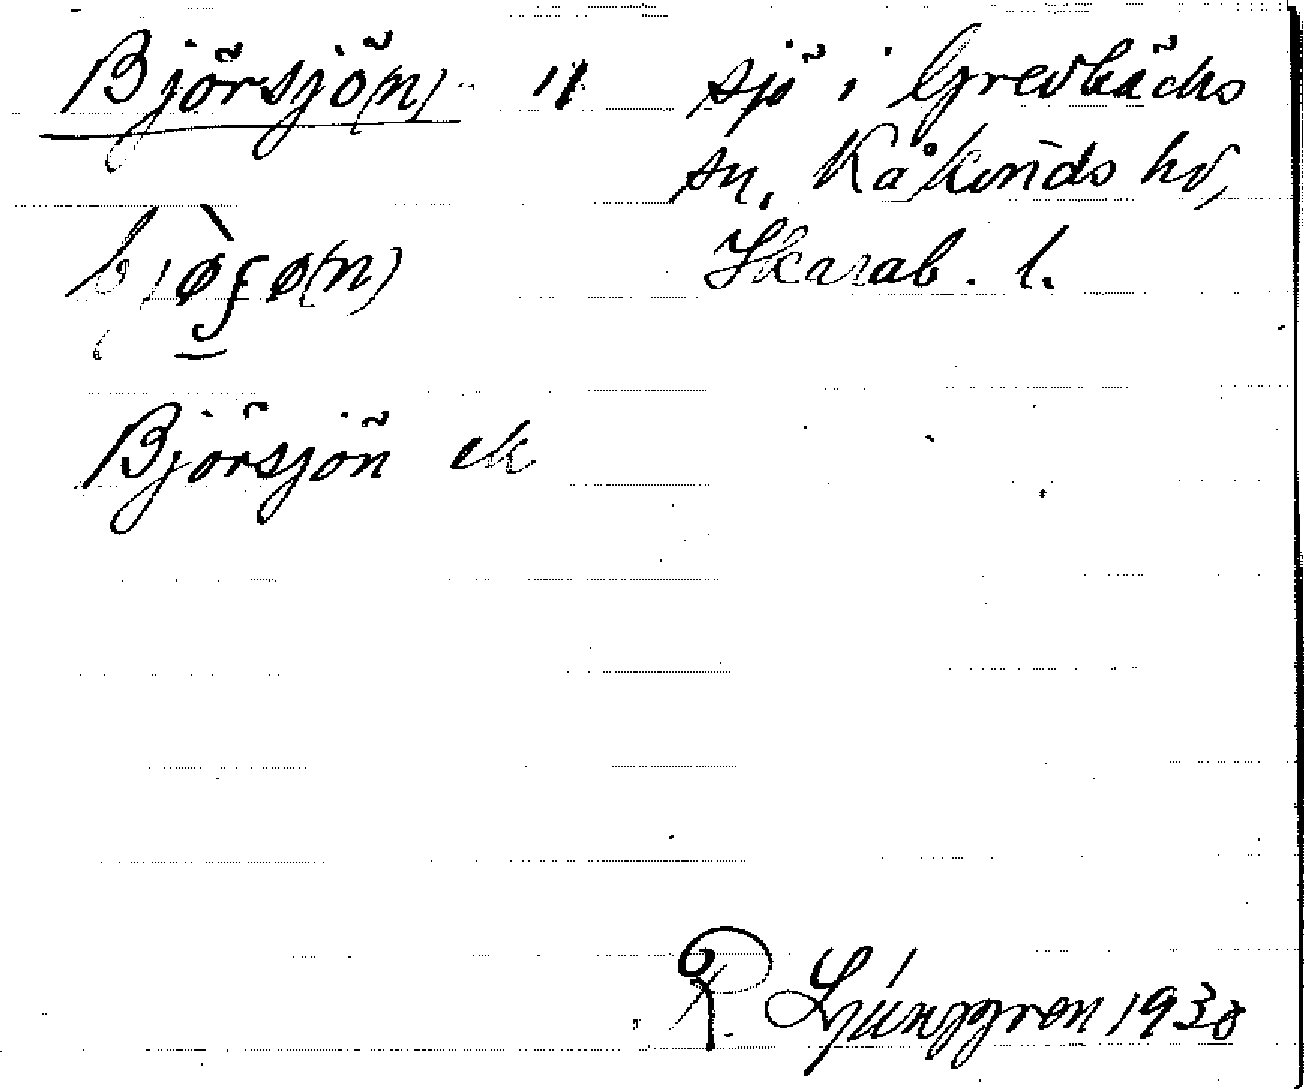 Björsjö(n) 11 sjö i Grevbäcks
sn, Kåkinds hd,
Skarab. l.
bjøʃø(n)
Björsjön ek
R. Ljunggren 1930